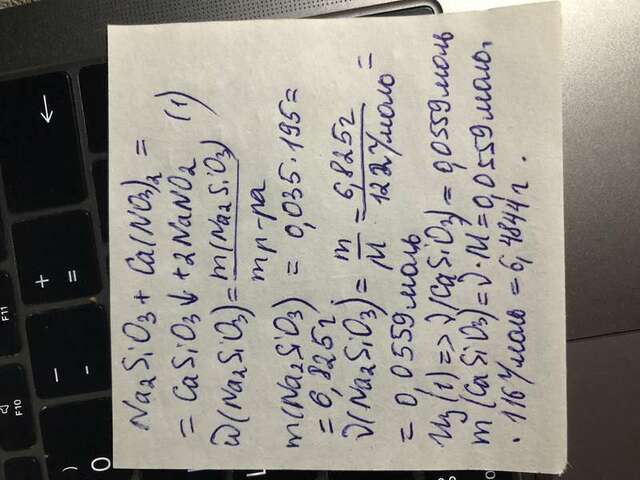 F10
F11
)
0
—
-
+
=
←
Na₂SiO₃ + Ca(NO₃)₂ =
= CaSiO₃↓ + 2NaNO₂ (1)
ω(Na₂SiO₃) = m(Na₂SiO₃)
mр-ра
m(Na₂SiO₃) = 0,035·195=
= 6,825г.
ν(Na₂SiO₃) = m/M = 6,825г/122г/моль =
= 0,0559моль
Из (1) => ν(CaSiO₃) = 0,0559моль
m(CaSiO₃) = ν·M = 0,0559моль·
·116г/моль = 6,4844г.